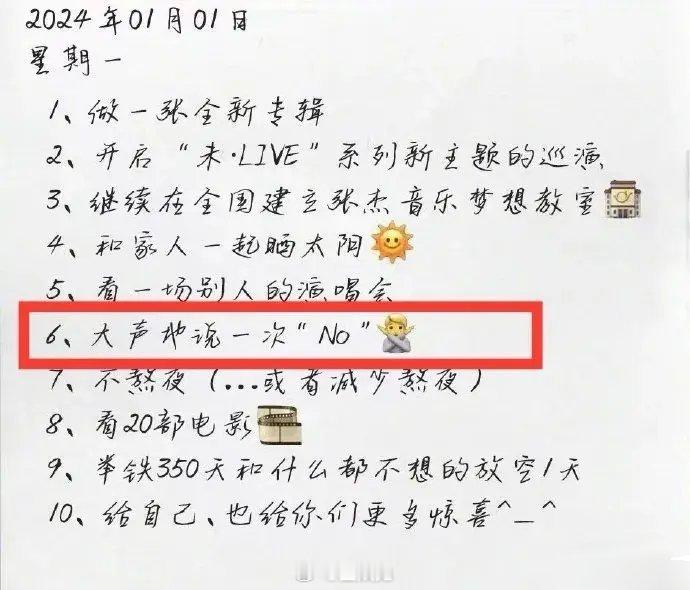 2024年01月01日
星期一
1、做一张全新专辑
2、开启“未·LIVE”系列新主题的巡演
3、继续在全国建立张杰音乐梦想教室🏤
4、和家人一起晒太阳🌞
5、看一场别人的演唱会
6、大声地说一次“No”🙅
7、不熬夜（...或者减少熬夜）
8、看20部电影🎞️
9、举铁350天和什么都不想的放空1天
10、给自己、也给你们更多惊喜^_^